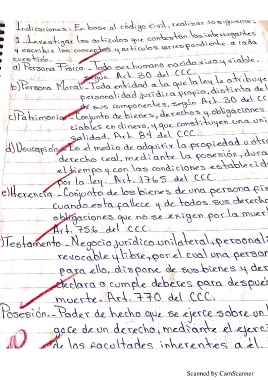 Indicaciones: En base al código civil, realizar lo siguiente:
1. Investigar los artículos que contestan las interrogantes
y escribir los conceptos y artículos correspondiente a cada
cuestión.
a) Persona Física.- Todo ser humano nacido vivo y viable.
Según Art. 30 del CCC.
b) Persona Moral.- Toda entidad a la que la ley le atribuye
personalidad jurídica propia, distinta de
sus componentes, según Art. 30 del CC
c) Patrimonio.- Conjunto de bienes, derechos y obligaciones
en dinero, y que constituyen una uni
salidad. Art. 84 del CCC.
Es el medio de adquirir la propiedad u otro
derecho real, mediante la posesión, dura
el tiempo y con las condiciones establecid
por la ley. Art. 1765 del CCC.
e) Herencia.- Conjunto de los bienes de una persona fís
cuando esta fallece y de todos sus derech
obligaciones que no se exigen por la muer
Art. 756 del CCC.
) Testamento.- Negocio jurídico unilateral, personalí
revocable y libre, por el cual una person
para ello, dispone de sus bienes y der
declara o cumple deberes para después
muerte. Art. 770 del CCC.
Posesión.- Poder de hecho que se ejerce sobre un
goce de un derecho, mediante el ejerci
de las facultades inherentes a él.
Scanned by CamScanner